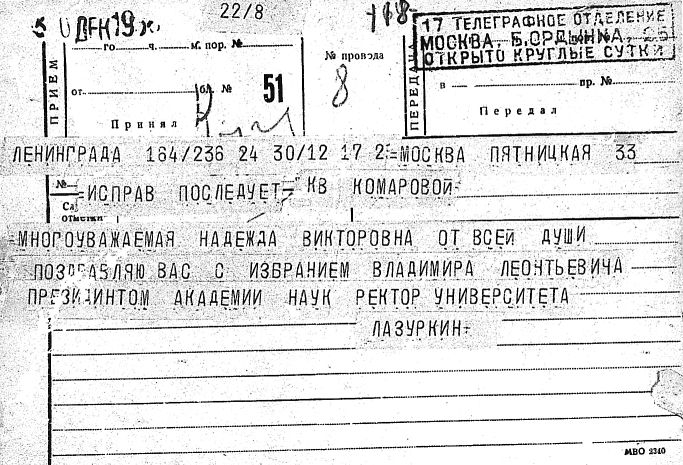 22/8
30 ДЕК 19
17 ТЕЛЕГРАФНОЕ ОТДЕЛЕНИЕ
МОСКВА, Б. ОРДЫНКА, 25
ОТКРЫТО КРУГЛЫЕ СУТКИ
ПРИЕМ
го ч. м. пор. №
от бл. № 51
Принял
№ провода
8
ПЕРЕДАЧА
в пр. №
Передал
ЛЕНИНГРАДА 164/236 24 30/12 17 2 =МОСКВА ПЯТНИЦКАЯ 33
№ =ИСПРАВ ПОСЛЕДУЕТ= КВ КОМАРОВОЙ=
отметки
=МНОГОУВАЖАЕМАЯ НАДЕЖДА ВИКТОРОВНА ОТ ВСЕЙ ДУШИ
ПОЗДРАВЛЯЮ ВАС С ИЗБРАНИЕМ ВЛАДИМИРА ЛЕОНТЬЕВИЧА
ПРЕЗИДИНТОМ АКАДЕМИИ НАУК РЕКТОР УНИВЕРСИТЕТА
ЛАЗУРКИН=
МВО 2340